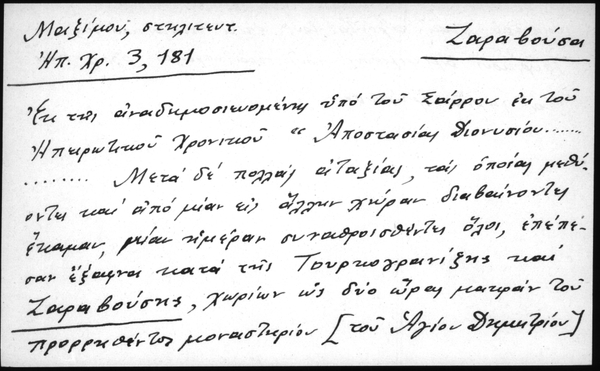 Μαξίμου, στηλιτευτ.
Ἠπ. Χρ. 3, 181
Ζαραβούσα
Ἐκ τῆς ἀναδημοσιευομένης ὑπό τοῦ Σάρρου ἐκ τοῦ
Ἠπειρωτικοῦ Χρονικοῦ " Ἀποστασίας Διονυσίου........
........ Μετά δέ πολλάς ἀταξίας, τάς ὁποίας μεθύ-
οντες καί ἀπό μίαν εἰς ἄλλην χώραν διαβαίνοντες
ἔκαμαν, μίαν ἡμέραν συναθροισθέντες ὅλοι, ἐπέπε-
σαν ἔξαφνα κατά τῆς Τουρκογρανίξης καί
Ζαραβούσης, χωρίων ὡς δύο ὥρας μακράν τοῦ
προρρηθέντος μοναστηρίου [τοῦ Ἁγίου Δημητρίου]